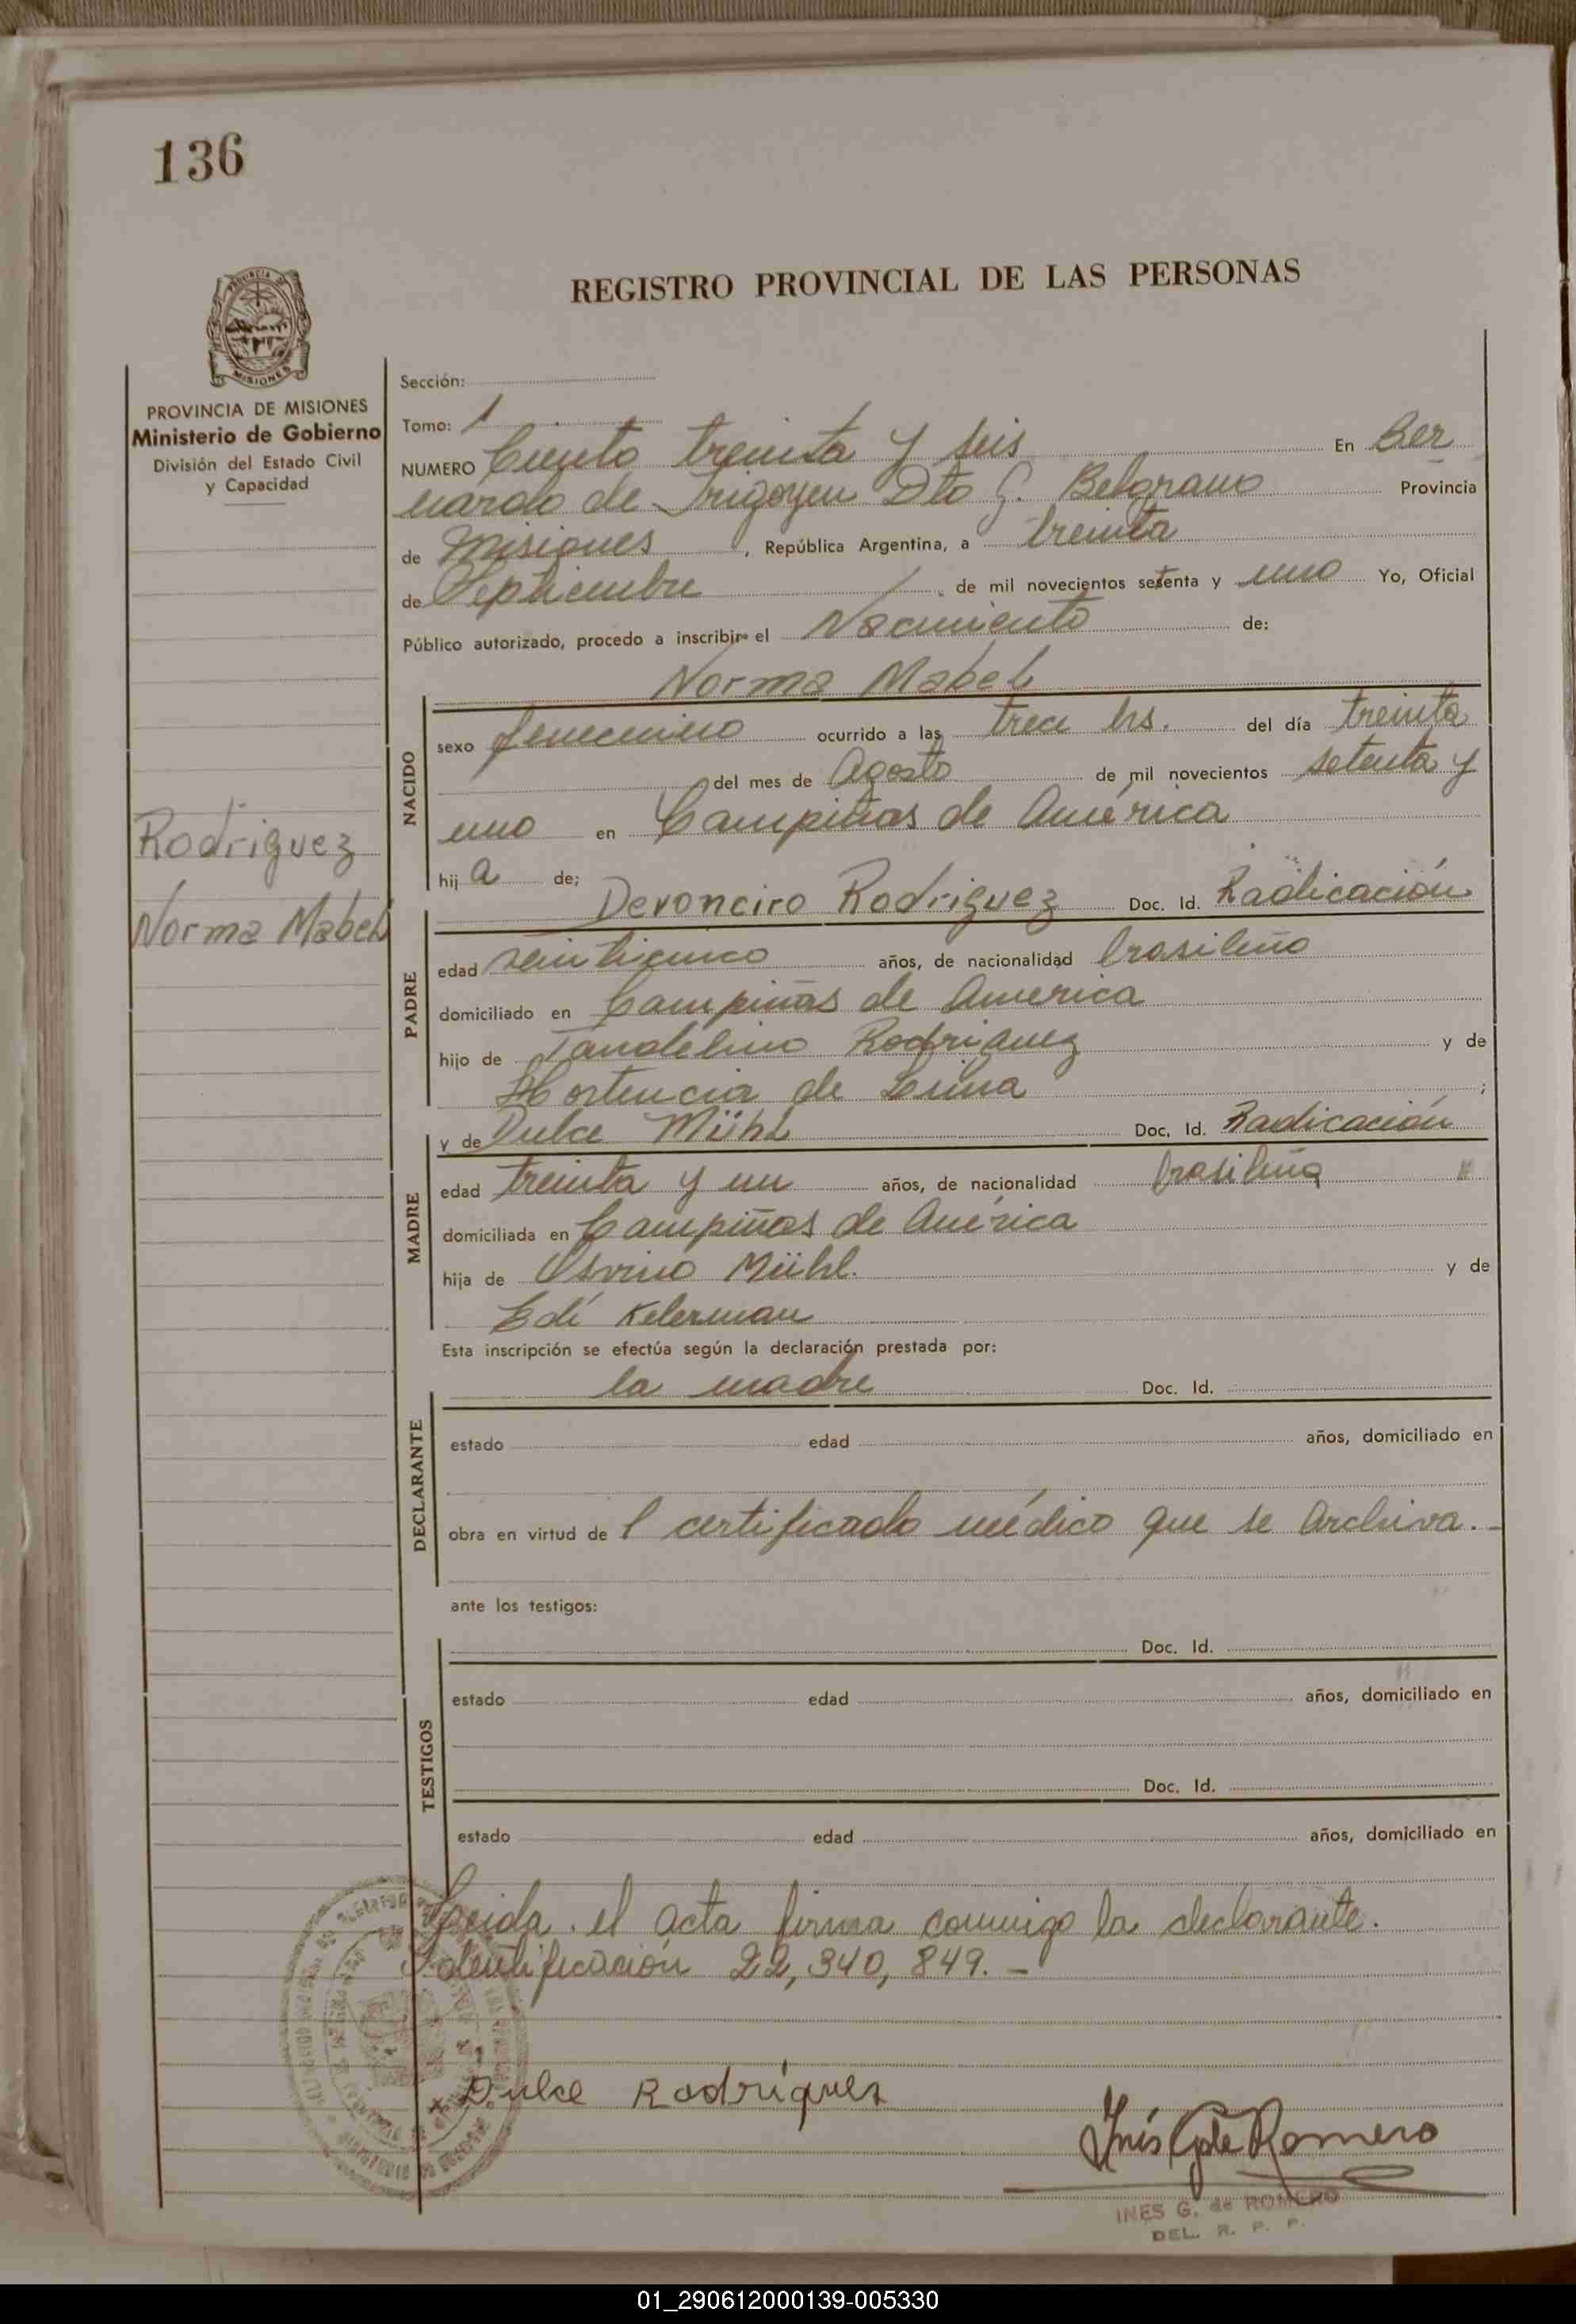 136
REGISTRO PROVINCIAL DE LAS PERSONAS
PROVINCIA DE MISIONES
Ministerio de Gobierno
División del Estado Civil
y Capacidad
Rodriguez
Norma Mabel
Sección:
Tomo: 1
NUMERO Ciento treinta y seis En Ber
nardo de Irigoyen Dto G. Belgrano Provincia
de Misiones, República Argentina, a treinta
de Septiembre de mil novecientos setenta y uno Yo, Oficial
Público autorizado, procedo a inscribir el Nacimiento de:
Norma Mabel
NACIDO
sexo femenino ocurrido a las trece hs. del día treinta
del mes de Agosto de mil novecientos setenta y
uno en Campiñas de América
hij a de;
Devonciro Rodriguez Doc. Id. Radicación
PADRE
edad veinticinco años, de nacionalidad brasileño
domiciliado en Campiñas de America
hijo de Rodriguez y de
Hortencia de Lima ;
y de Dulce Mühl Doc. Id. Radicación
MADRE
edad treinta y un años, de nacionalidad brasileña
domiciliada en Campiñas de América
hija de Osvino Mühl. y de
Edí Kelerman
Esta inscripción se efectúa según la declaración prestada por:
la madre Doc. Id.
DECLARANTE
estado edad años, domiciliado en
obra en virtud de l certificado médico que se archiva.-
ante los testigos:
Doc. Id.
TESTIGOS
estado edad años, domiciliado en
Doc. Id.
estado edad años, domiciliado en
el acta firma conmigo la declarante.
Identificación 22,340,849.-
x Dulce Rodríguez
Inés G de Romero
INES G. de ROMERO
DEL. R. P. P.
01_290612000139-005330